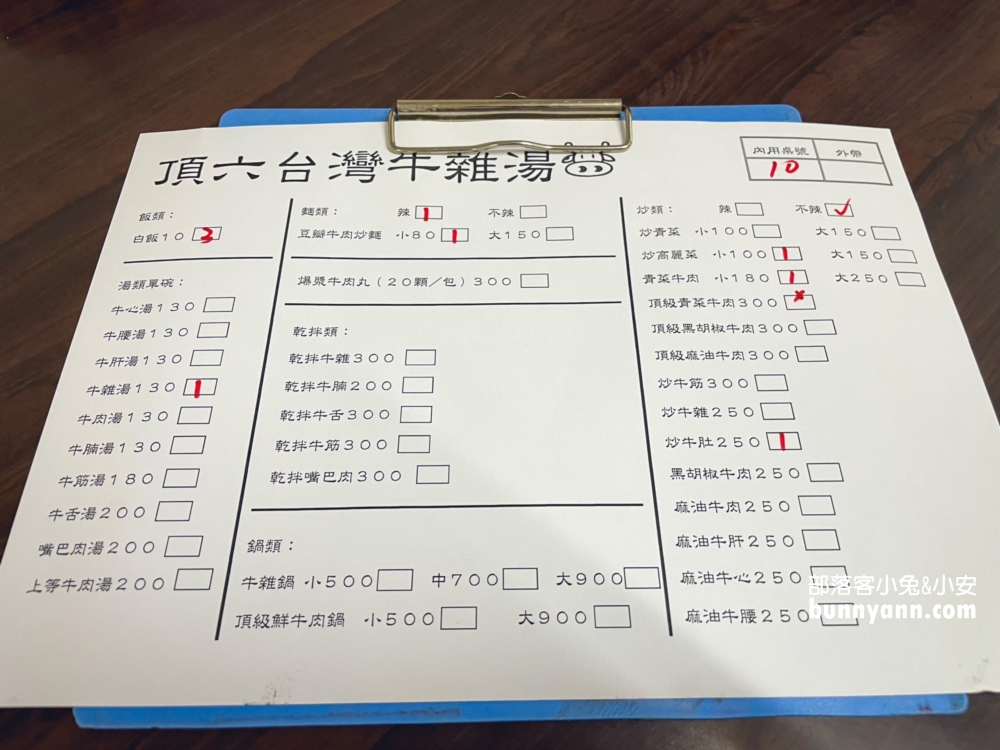 頂六台灣牛雜湯
內用桌號 外帶
10
飯類：
白飯10 3
湯類單碗：
牛心湯130
牛腰湯130
牛肝湯130
牛雜湯130 1
牛肉湯130
牛腩湯130
牛筋湯180
牛舌湯200
嘴巴肉湯200
上等牛肉湯200
麵類： 辣 1 不辣
豆瓣牛肉炒麵 小80 1 大150
爆漿牛肉丸（20顆／包）300
乾拌類：
乾拌牛雜300
乾拌牛腩200
乾拌牛舌300
乾拌牛筋300
乾拌嘴巴肉300
鍋類：
牛雜鍋 小500 中700 大900
頂級鮮牛肉鍋 小500 大900
炒類： 辣 不辣 ✓
炒青菜 小100 大150
炒高麗菜 小100 1 大150
青菜牛肉 小180 1 大250
頂級青菜牛肉300 ✗
頂級黑胡椒牛肉300
頂級麻油牛肉300
炒牛筋300
炒牛雜250
炒牛肚250 1
黑胡椒牛肉250
麻油牛肉250
麻油牛肝250
麻油牛心250
麻油牛腰250
部落客小兔&小安
bunnyann.com